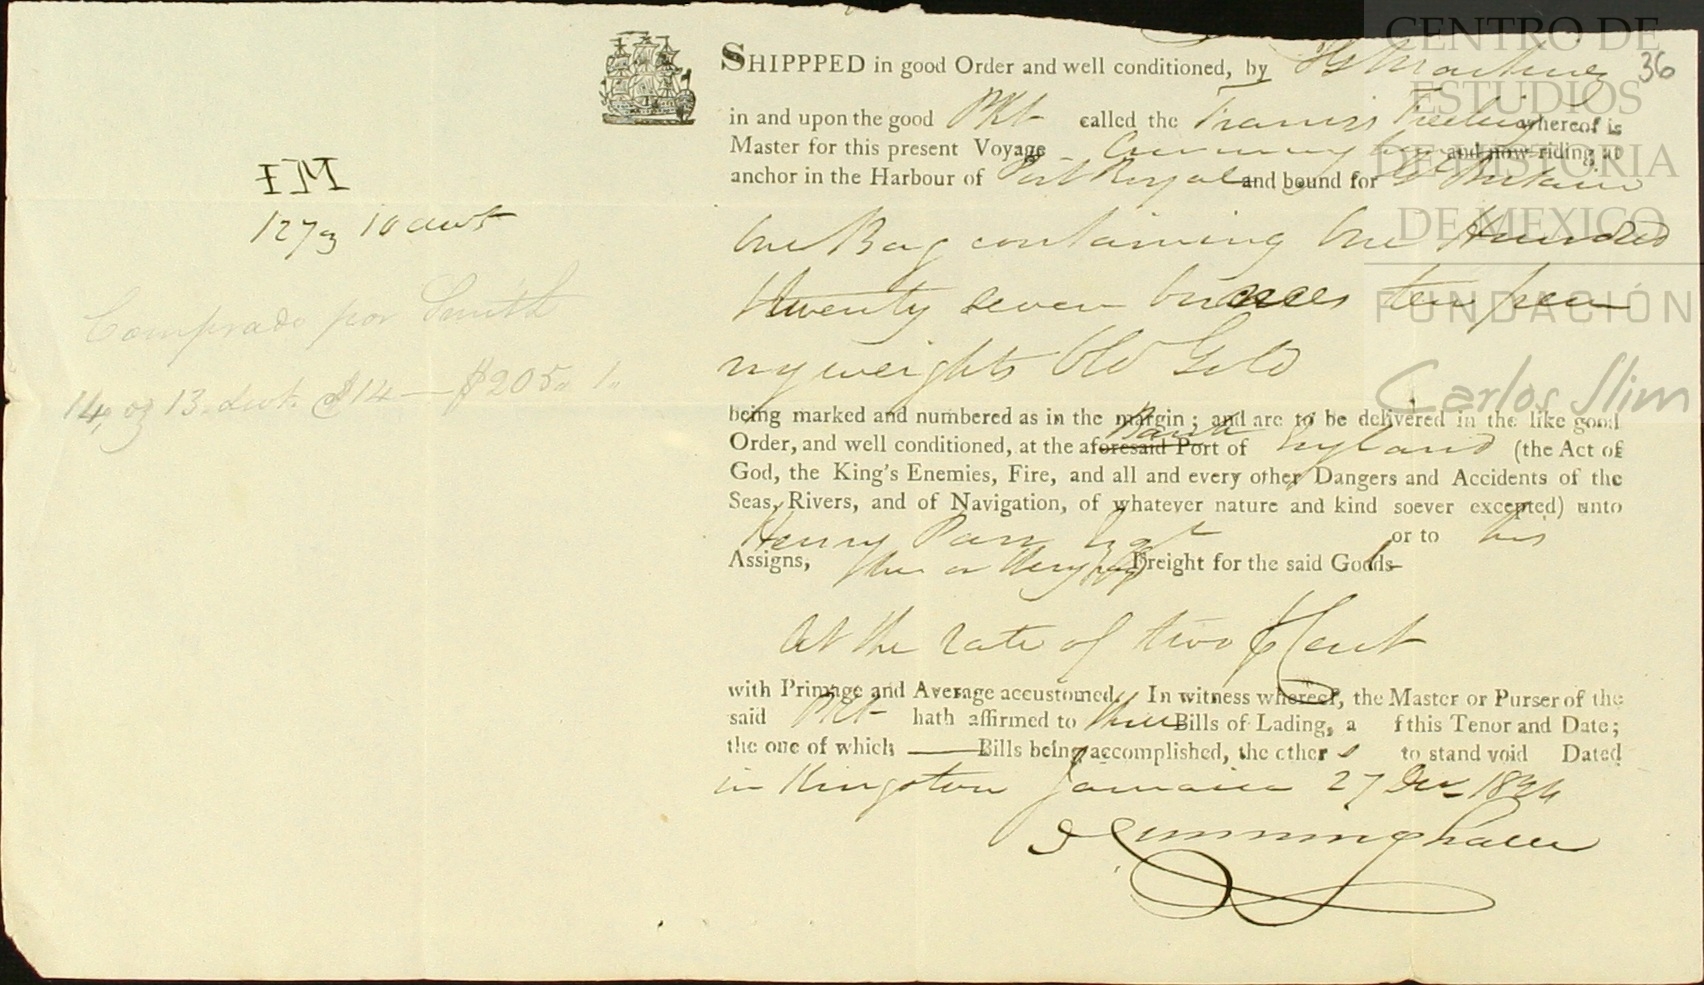 36
SHIPPPED in good Order and well conditioned, by
in and upon the good Pkt called the Francis Freeling whereof is
Master for this present Voyage Cunningham and now riding at
anchor in the Harbour of Port Royal and bound for Gt Britain
IM
127 oz 10 dwts
One Bag containing One Hundred
twenty seven ounces ten pen
nyweights Old Gold
Comprado por Smith
14 oz 13 dwt @ $14 — $205 " 1 "
being marked and numbered as in the margin; and are to be delivered in the like good
Order, and well conditioned, at the aforesaid Port of Bank England (the Act of
God, the King's Enemies, Fire, and all and every other Dangers and Accidents of the
Seas, Rivers, and of Navigation, of whatever nature and kind soever excepted) unto
Henry Parr Esqr or to his
Assigns, he or they paying Freight for the said Goods
At the rate of two p Cent
with Primage and Average accustomed. In witness whereof, the Master or Purser of the
said Pkt hath affirmed to three Bills of Lading, a f this Tenor and Date;
the one of which Bills being accomplished, the other s to stand void Dated
in Kingston Jamaica 27 Decr 1824
J Cunningham
CENTRO DE
ESTUDIOS
DE HISTORIA
DE MEXICO
FUNDACIÓN
Carlos Slim